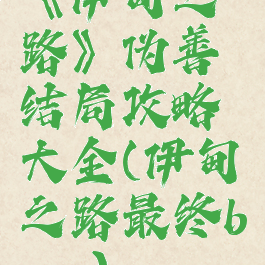 《伊甸之
路》伪善
结局攻略
大全(伊甸
之路最终b